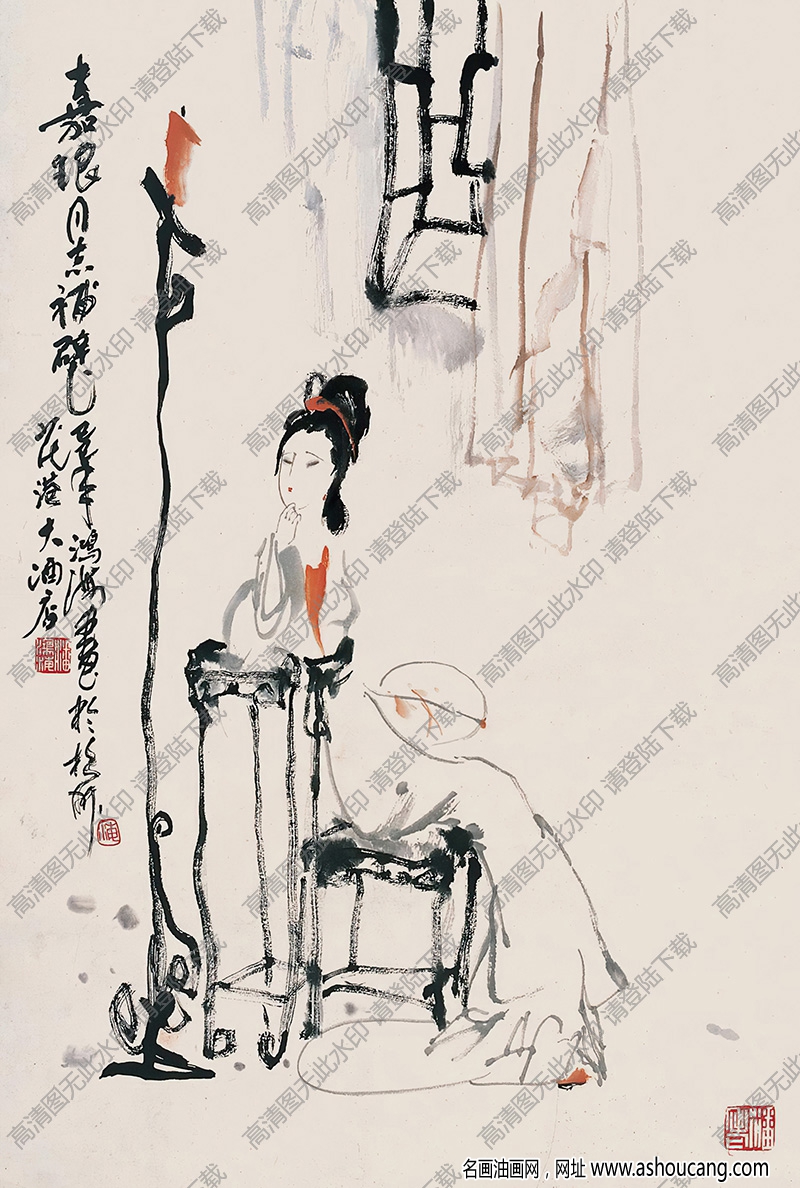 嘉银同志补壁
鸿海画于杭州
茂港大酒店
高清图无此水印 请登陆下载
名画油画网，网址 www.ashoucang.com